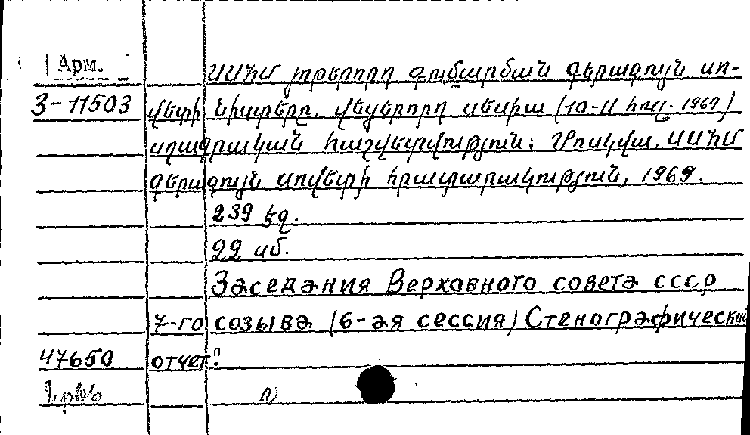 Арм.
ՍՍՀՄ յոթերորդ գումարման գերագույն սո-
3-11503 վետի նիստերը. վեցերորդ սեսիա (10-11 հուլ. 1969)
սղագրական հաշվետվություն: Մոսկվա, ՍՍՀՄ
գերագույն սովետի հրատարակություն, 1969.
239 էջ.
22 սմ.
Заседания Верховного совета СССР
7-го созыва (6-ая сессия) Стенографический
47650 отчет: